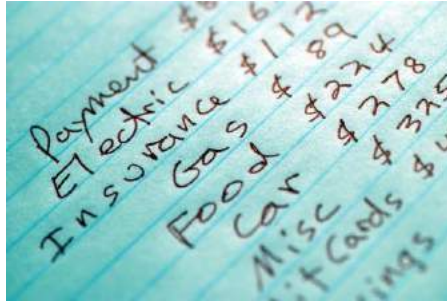 Payment $
Electric $16
Insurance $112
Gas $ 89
Food $224
Car $278
Misc $325
Cards $